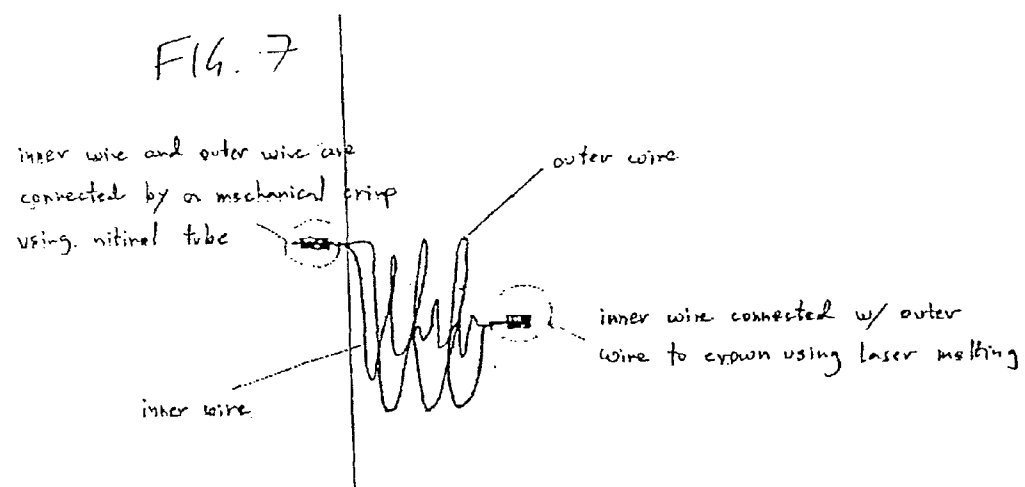 FIG. 7
inner wire and outer wire are
connected by a mechanical crimp
using nitinol tube
outer wire
inner wire connected w/ outer
wire to crown using laser melting
inner wire